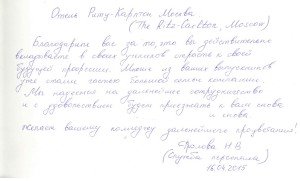 Отель Ритц-Карлтон Москва
(The Ritz-Carlton, Moscow)
Благодарим вас за то, что вы действительно
вкладываете в своих учеников страсть к своей
будущей профессии. Многие из ваших выпускников
уже стали частью большой семьи компании.
Мы надеемся на дальнейшее сотрудничество
и с удовольствием будем приезжать к вам снова
и снова
желаем вашему колледжу дальнейшего процветания!
Фролова Н.В
(Служба персонала)
16.04.2015